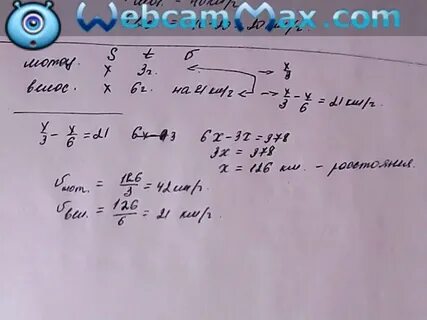 WebcamMax.com
S t б
мотоц. x 3г. x/3
велос. x 6г. на 21 км/г x/3 - x/6 = 21 км/г.
x/3 - x/6 = 21 6x - 3x = 378
3x = 378
x = 126 км. - расстояния.
υмот. = 126/3 = 42 км/г.
υвел. = 126/6 = 21 км/г.